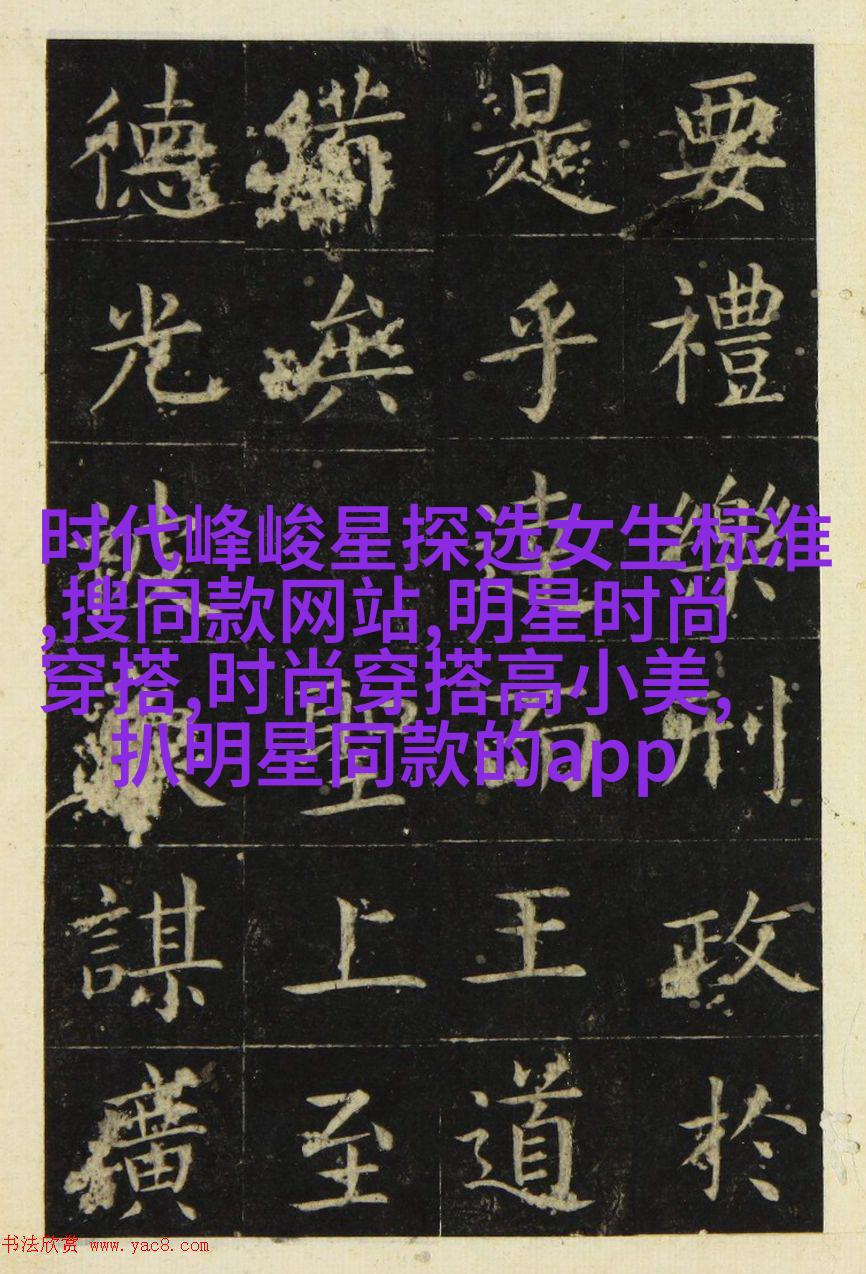 要禮樂刑政於
是乎達而王道
備聖上至
德光被謀廣
时代峰峻星探选女生标准
,搜同款网站,明星时尚
穿搭,时尚穿搭高小美,
扒明星同款的app
书法欣赏 www.yac8.com